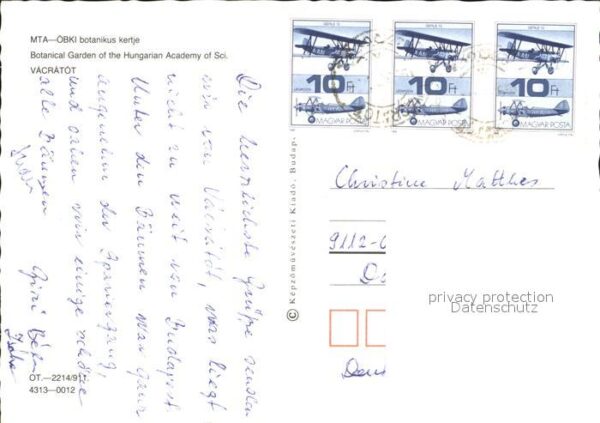 MTA—ÖBKI botanikus kertje
Botanical Garden of the Hungarian Academy of Sci.
VÁCRÁTÓT
Die herzlichste Grüße senden
wir von Vácrátót, was liegt
nicht zu weit von Budapest.
Unter den Bäumen war ganz
angenehm der Spaziergang,
und sahen wir einige schöne
alte Bäumen
OT.—2214/911.
4313—0012
Képzőművészeti Kiadó, Budap.
10 Ft
MAGYAR POSTA
10 Ft
MAGYAR POSTA
10 Ft
MAGYAR POSTA
Christine Matthes
9112-
privacy protection
Datenschutz